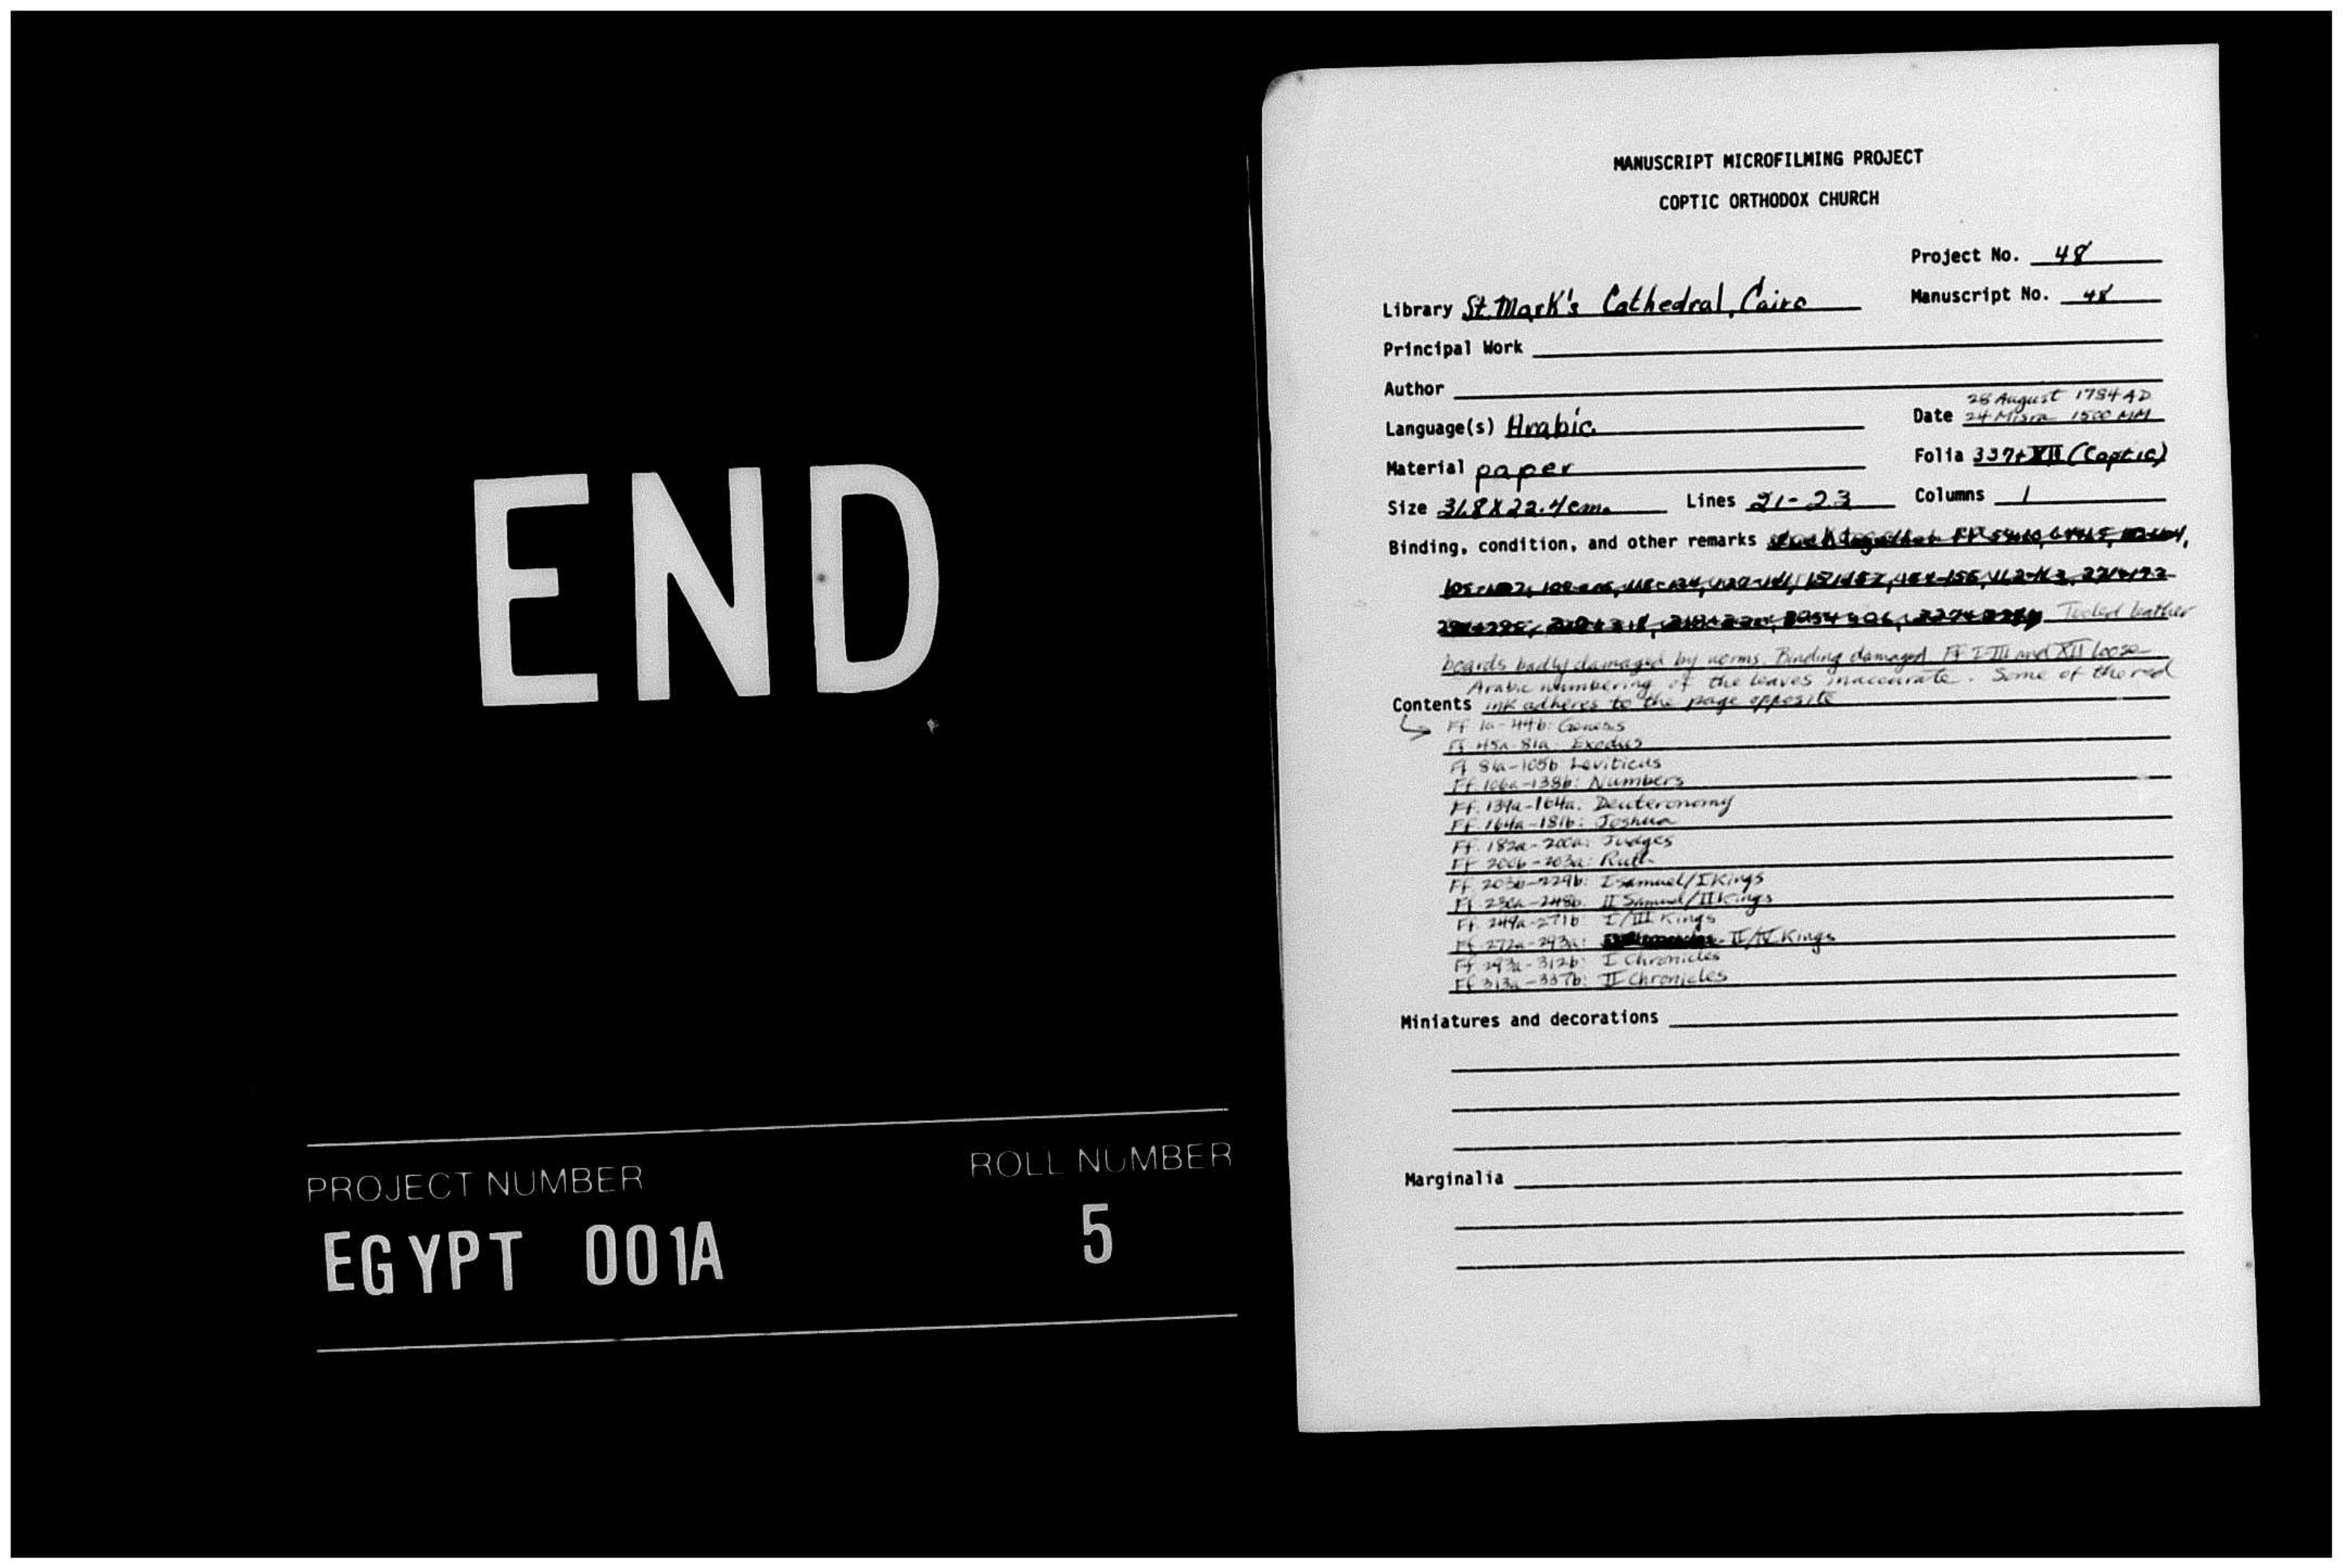 END
PROJECT NUMBER
ROLL NUMBER
EGYPT 001A
5
MANUSCRIPT MICROFILMING PROJECT
COPTIC ORTHODOX CHURCH
Project No. 48
Library St. Mark's Cathedral, Cairo
Manuscript No. 48
Principal Work
Author
28 August 1784 AD
Language(s) Arabic
Date 24 Misra 1500 MM
Material paper
Folia 337+XII (Coptic)
Size 31.8 X 22.4 cm.
Lines 21-23
Columns 1
Binding, condition, and other remarks
Tooled leather
boards badly damaged by worms. Binding damaged. Ff I-III and XII loose
Arabic numbering of the leaves inaccurate. Some of the red
Contents ink adheres to the page opposite
Ff 1a-44b: Genesis
Ff 45a-81a: Exodus
Ff 81a-105b Leviticus
Ff. 106a-138b: Numbers
Ff. 139a-164a: Deuteronomy
Ff. 164a-181b: Joshua
Ff. 182a-200a: Judges
Ff 200b-203a: Ruth
Ff. 203b-229b: I Samuel/I Kings
Ff. 230a-248b: II Samuel/II Kings
Ff. 249a-271b I/III Kings
Ff 272a-293a: II/IV Kings
Ff 293a-312b: I Chronicles
Ff 313a-337b: II Chronicles
Miniatures and decorations
Marginalia